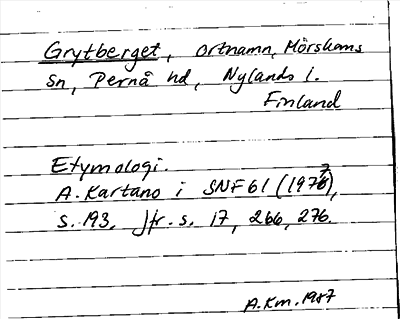 Grytberget, ortnamn, Mörskoms
sn, Pernå hd, Nylands l.
Finland
Etymologi.
A. Kartano i SNF 61 (1977),
s. 193. Jfr. s. 17, 266, 276.
A.Km. 1987